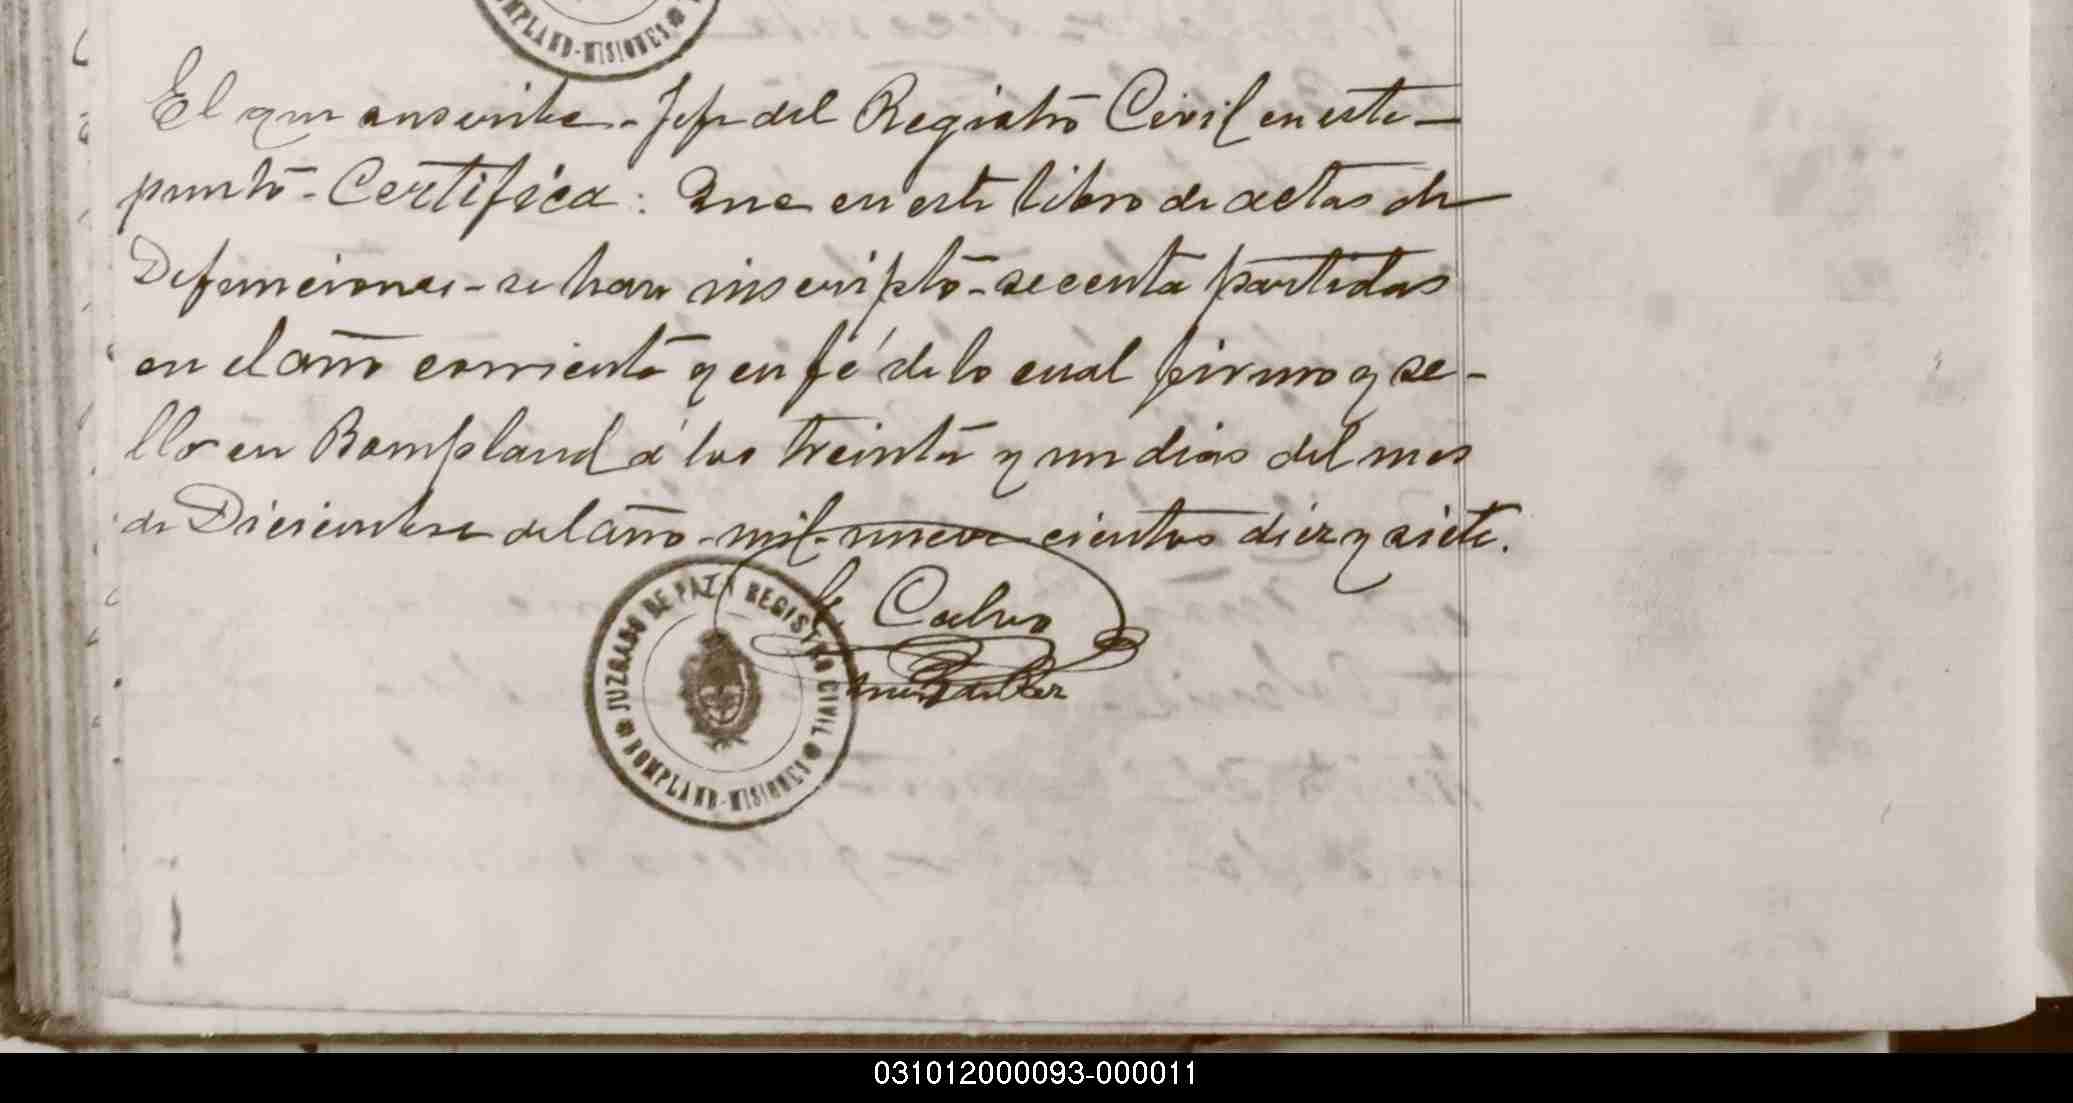 BOMPLAND-MISIONES
El que suscribe - Jefe del Registro Civil en este -
punto - Certifica: Que en este libro de actas de
Defunciones - se han inscripto - secenta partidas
en el año corriente y en fé de lo cual firmo y se-
llo en Bompland á los treinta y un dias del mes
de Diciembre del año - mil - nueve cientos diez y siete.
Calvo
JUZGADO DE PAZ Y REGISTRO CIVIL
BOMPLAND-MISIONES
Juez de Paz
031012000093-000011